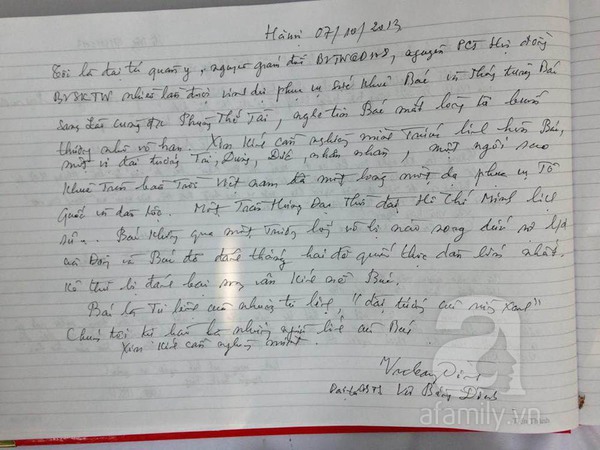 Hà nội 07/10/2013
Tôi là đại tá quân y, nguyên giám đốc BVTWQĐ108, nguyên PCT Hội đồng
BVSKTW nhiều lần được vinh dự phục vụ sức khoẻ Bác và tháng trước Bác
sang Lào cùng Phùng Thế Tài, nghe tin Bác mất lòng tôi buồn
thương nhớ vô hạn. Xin kính cẩn nghiêng mình trước linh hồn Bác,
một vị đại tướng Tài, Dũng, Đức, nhân nhẫn, một ngôi sao
Khuê trên bầu trời Việt nam đã một lòng một dạ phục vụ Tổ
Quốc và dân tộc. Một Trần Hưng Đạo thời đại Hồ Chí Minh lịch
sử. Bác không qua một trường lớp võ bị nào song dưới sự lđ
của Đảng và Bác đã đánh thắng hai đế quốc thực dân lớn nhất.
Kẻ thù bị đánh bại song vẫn kính nể Bác.
Bác là Tư lệnh của những tư lệnh, "đại tướng của mọi
Chúng tôi tự hào là những người lính của Bác
Xin kính cẩn nghiêng mình.
Vũ Bằng Đình
afamily.vn